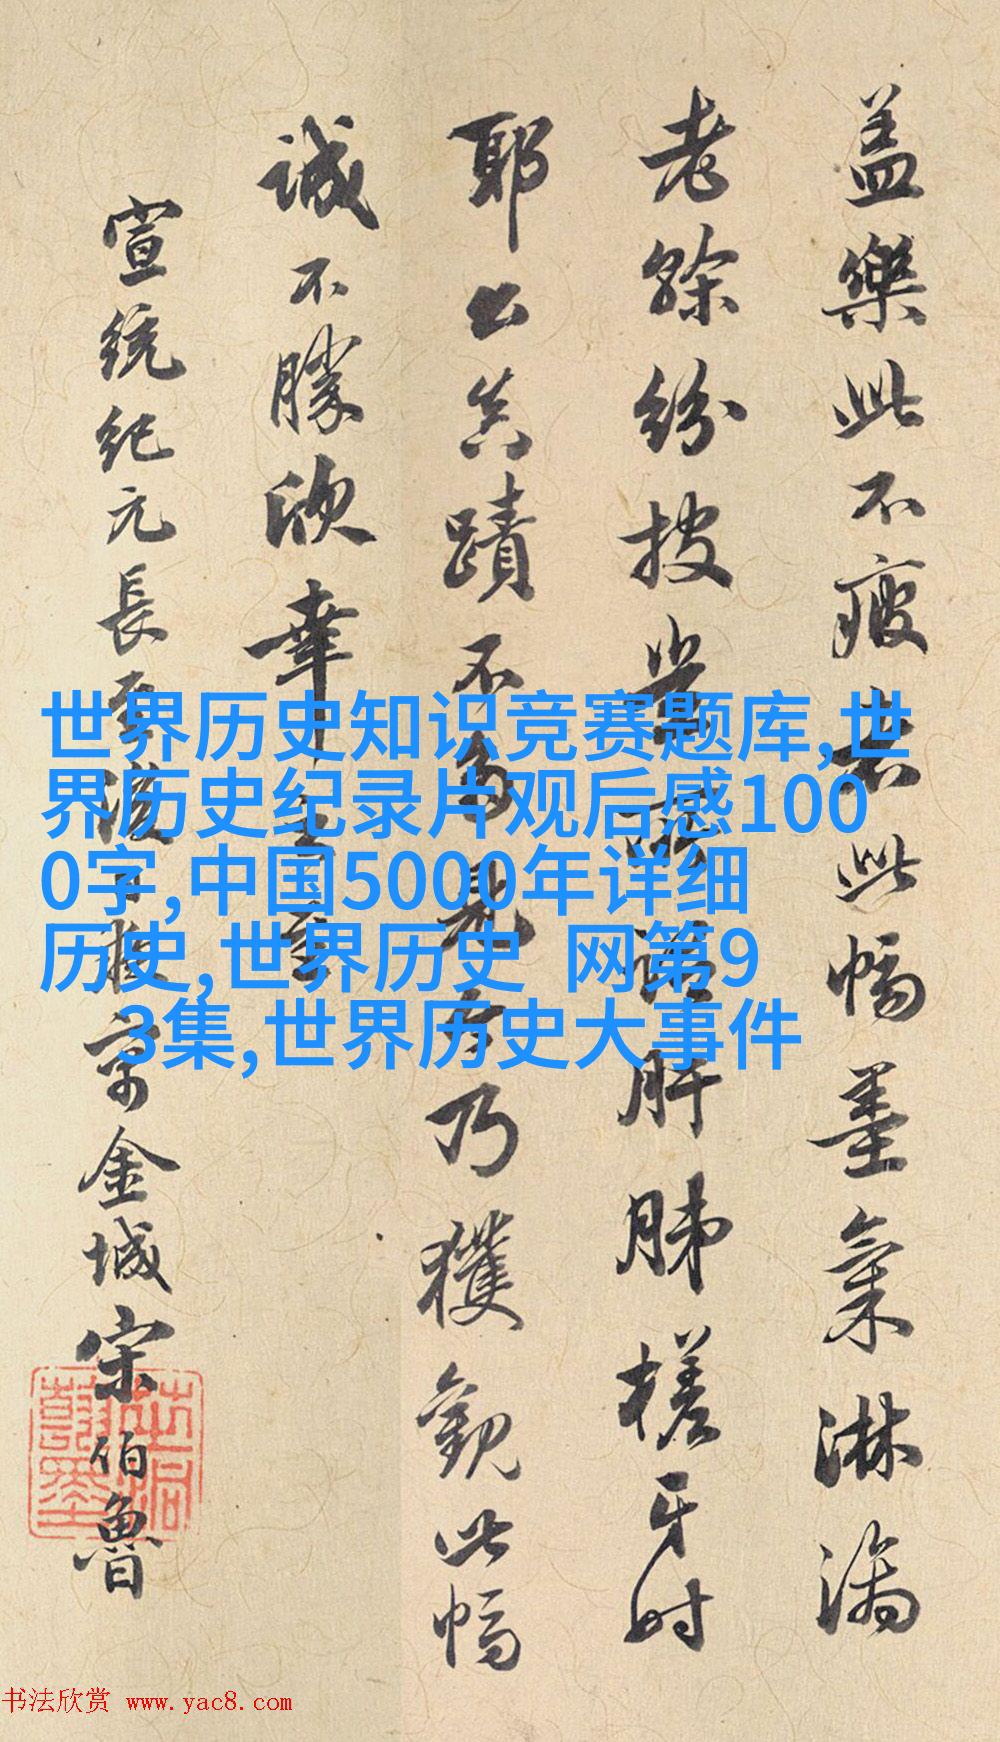 盖樂此不疲者此幅墨氣淋漓
老餘紛披
肝肺槎牙时
耶公真蹟不易
乃獲觀此幅
誠不勝欣幸
宣統紀元長至
京金城宋伯魯
世界历史知识竞赛题库,世
界历史纪录片观后感100
0字,中国5000年详细
历史,世界历史 网第9
3集,世界历史大事件
书法欣赏 www.yac8.com